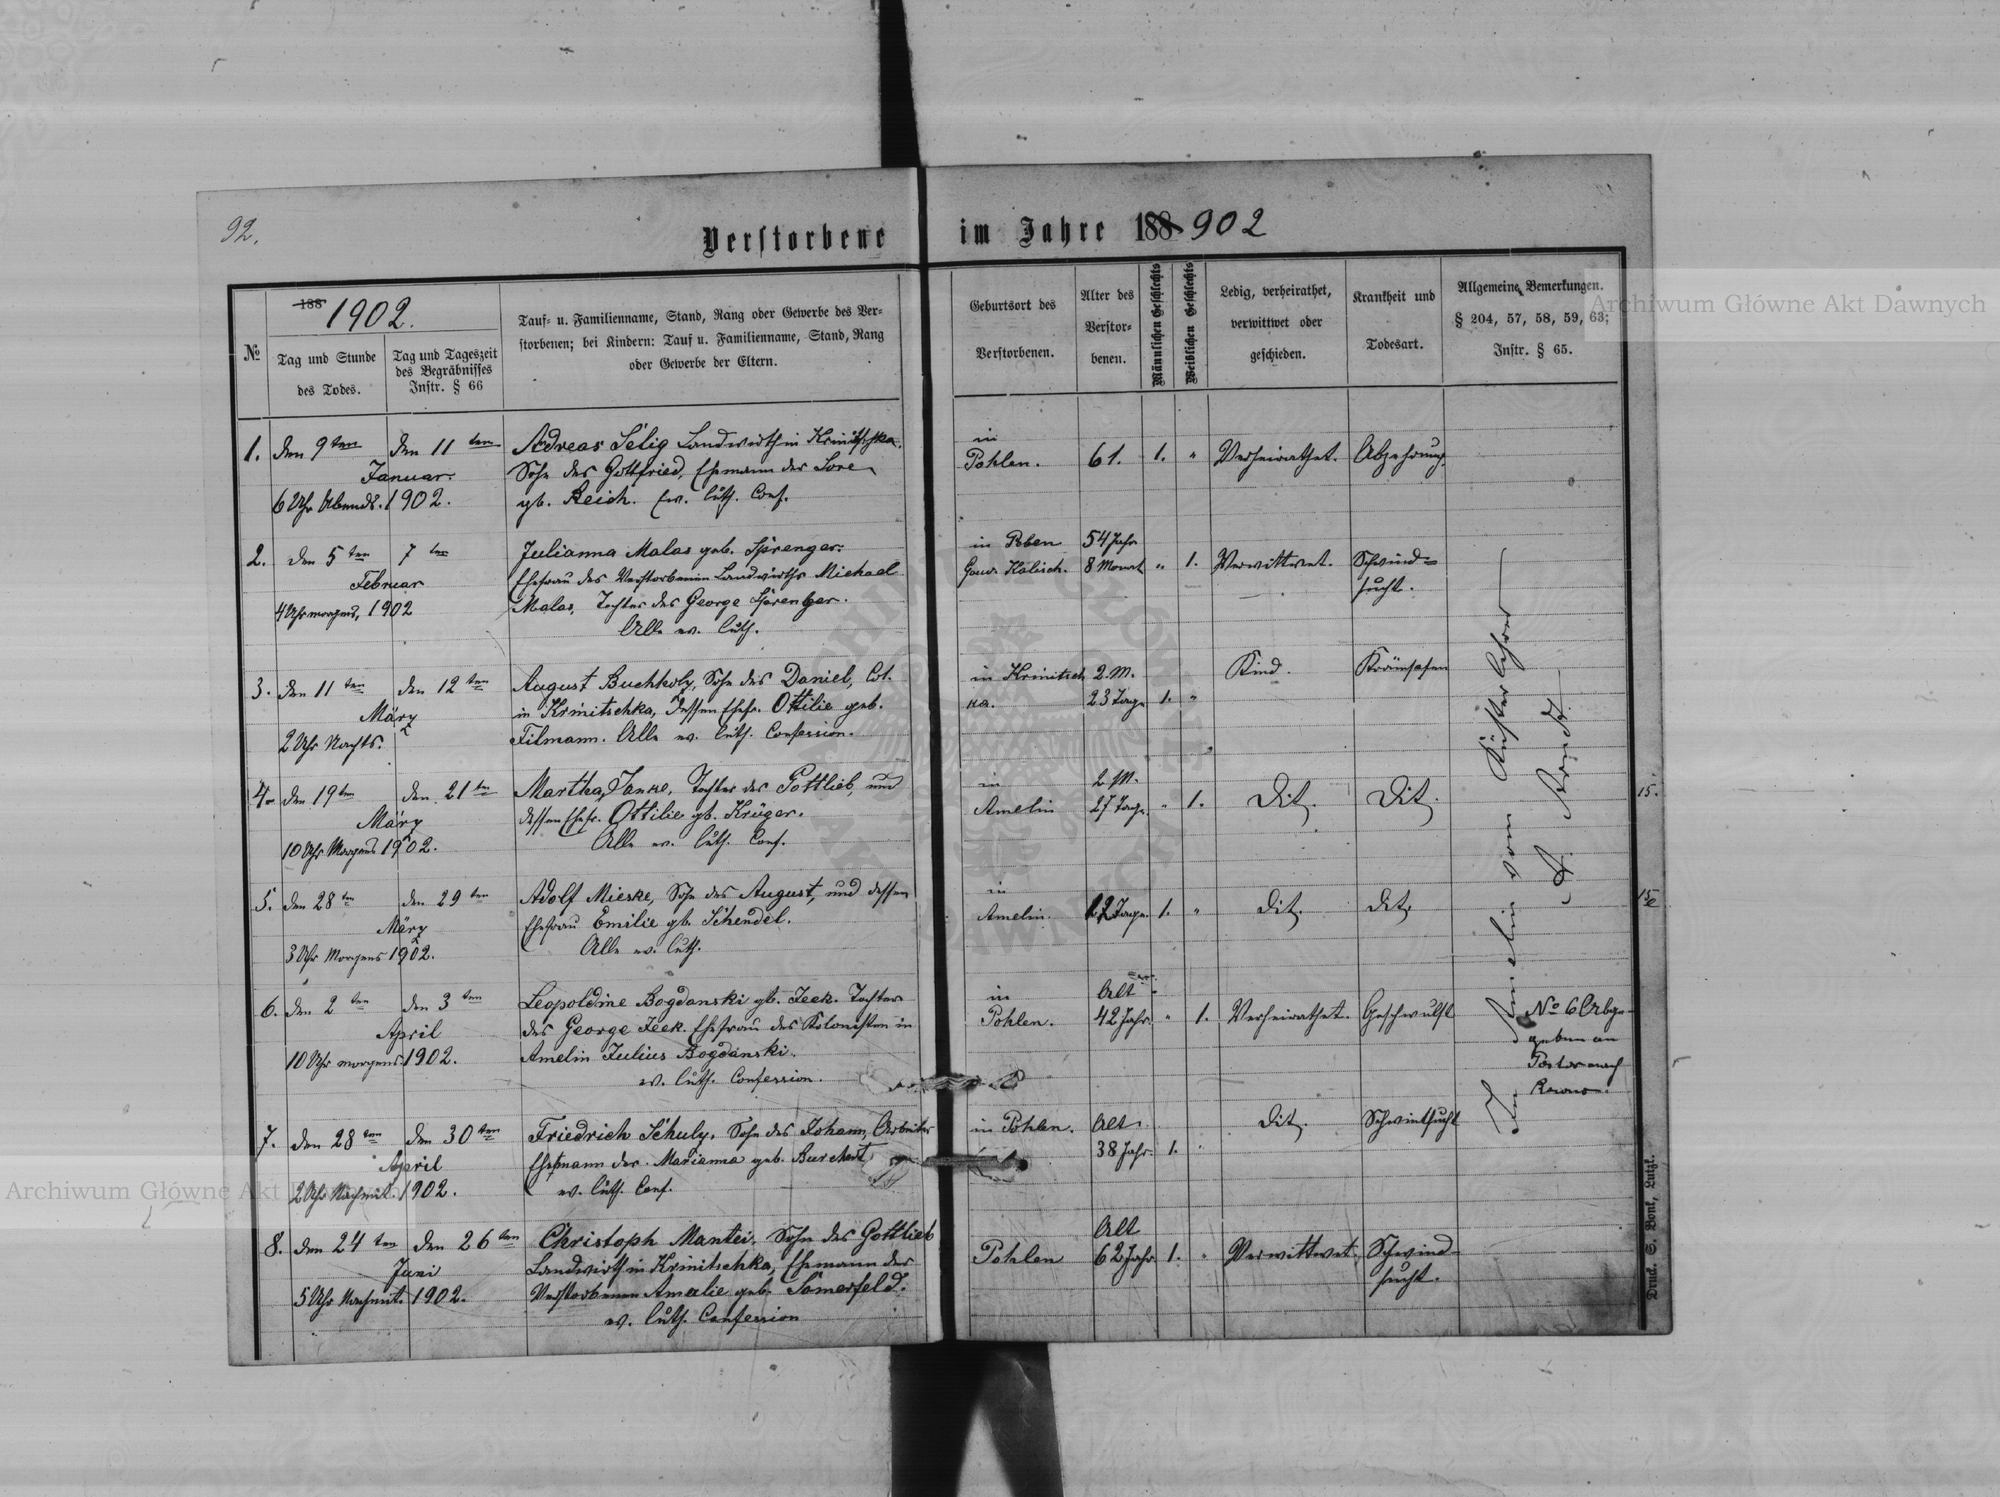 92.
Verstorbene im Jahre 188 902
№
188 1902.
Tag und Stunde
des Todes.
Tag und Tageszeit
des Begräbnisses
Instr. § 66
Tauf- u. Familienname, Stand, Rang oder Gewerbe des Ver-
storbenen; bei Kindern: Tauf u. Familienname, Stand, Rang
oder Gewerbe der Eltern.
Geburtsort des
Verstorbenen.
Alter des
Verstor-
benen.
Männlichen Geschlechts
Weiblichen Geschlechts
Ledig, verheirathet,
verwittwet oder
geschieden.
Krankheit und
Todesart.
Allgemeine Bemerkungen.
§ 204, 57, 58, 59, 63;
Instr. § 65.
Archiwum Główne Akt Dawnych
1.
den 9 ten
den 11 ten
Januar.
6 Uhr Abends. 1902.
Andreas Selig Landwirth in Krinitschka.
Sohn des Gottfried, Ehemann der Lore
gb. Reich. ev. luth. Conf.
in
Pohlen.
61.
1.
"
Verheirathet.
Abzehrung.
2.
den 5 ten
7 ten
Februar
4 Uhr morgens, 1902
Julianna Malas geb. Sprenger.
Ehefrau des Verstorbenen Landwirths Michael
Malas, Tochter des George Sprenger.
Alle ev. luth.
in
Gouv. Kalisch.
54 Jahr
8 Monat
"
1.
Verwittwet.
Schwind=
sucht.
3.
den 11 ten
den 12 ten
März
2 Uhr Nachts.
August Buchholz, Sohn des Daniel, Col.
in Krinitschka, dessen Ehefr. Ottilie geb.
Filmann. Alle ev. luth. Confession.
in Krinitsch
ka.
2. M.
23 Tage
1.
"
Kind.
Krämpfen
4.
den 19 ten
den 21 ten
März
10 Uhr Morgens 1902.
Martha Janke, Tochter des Gottlieb, und
dessen Ehefr. Ottilie gb. Krüger.
Alle ev. luth. Conf.
in
Amelin
2. M.
27 Tage.
"
1.
Dit.
Dit.
15.
5.
den 28 ten
den 29 ten
März
3 Uhr Morgens 1902.
Adolf Mieske, Sohn des August, und dessen
Ehefrau Emilie gb. Schendel.
Alle ev. luth.
in
Amelin.
12 Tage.
1.
"
dit.
dit.
15
6.
den 2 ten
den 3 ten
April
10 Uhr morgens 1902.
Leopoldine Bogdanski gb. Jeek. Tochter
des George Jeek. Ehefrau des Kolonisten in
Amelin Julius Bogdanski.
ev. luth. Confession.
in
Pohlen.
Alt
42 Jahr.
"
1.
Verheirathet.
Geschwulst
No 6 Abge-
geben an
Pastor nach
Rowno.
7.
den 28 ten
den 30 ten
April
2 Uhr Nachmit. 1902.
Friedrich Schulz, Sohn des Johann, Arbeiter
Ehemann der Marianna geb. Burchert
ev. luth. Conf.
in Pohlen.
Alt
38 Jahr.
1.
dit.
Schwintsucht
8.
den 24 ten
den 26 ten
Juni
5 Uhr Nachmit. 1902.
Christoph Mantei, Sohn des Gottlieb
Landwirth in Krinitschka, Ehemann der
Verstorbenen Amalie geb. Somerfeld.
ev. luth. Confession
Pohlen
Alt
62 Jahr
1.
"
Verwittwet
Schwind-
sucht.
In Amelin vom Küster Lehrer
Druck. S. Bonk, Lutzk.
Archiwum Główne Akt Dawnych